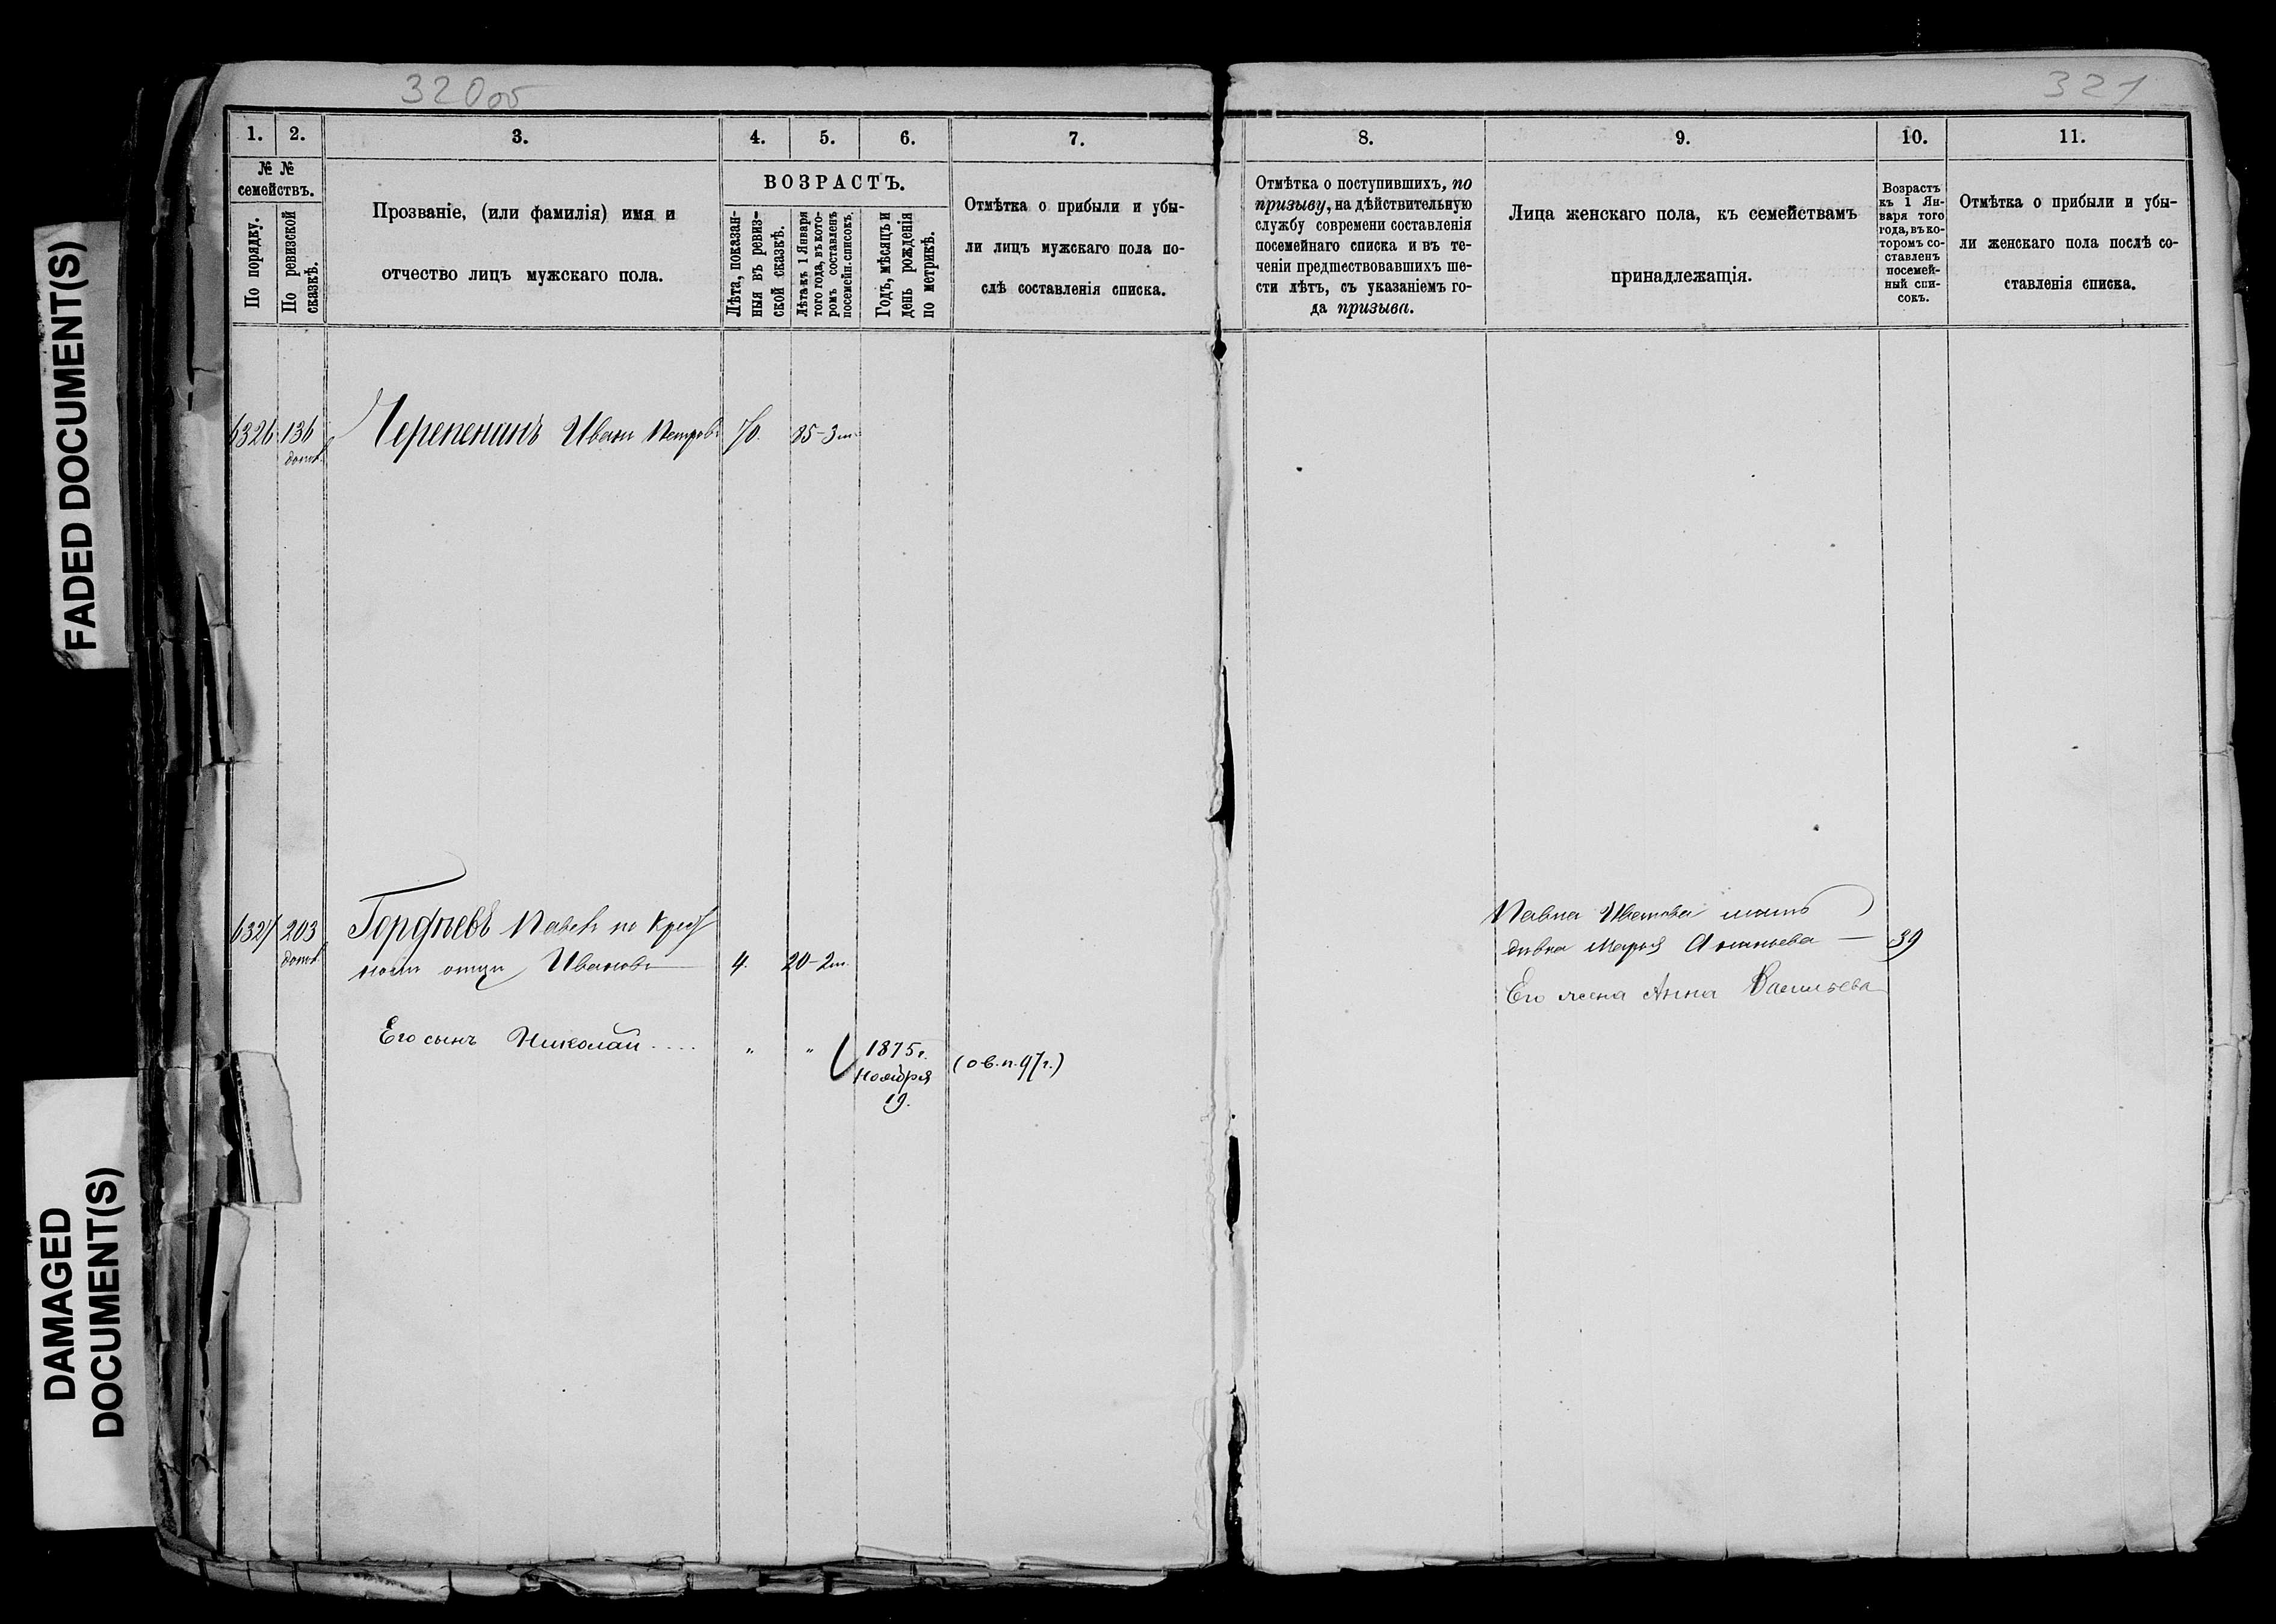 320об
321
1. 2. 3. 4. 5. 6. 7.
№ №
семействъ.
По порядку.
По ревизской
сказкѣ.
Прозваніе, (или фамилія) имя и
отчество лицъ мужскаго пола.
ВОЗРАСТЪ.
Лѣта, показан-
ныя въ ревиз-
ской сказкѣ.
Лѣта къ 1 Января
того года, въ кото-
ромъ составленъ
посемейн. списокъ.
Годъ, мѣсяцъ и
день рожденія
по метрикѣ.
Отмѣтка о прибыли и убы-
ли лицъ мужскаго пола по-
слѣ составленія списка.
8. 9. 10. 11.
Отмѣтка о поступившихъ, по
призыву, на дѣйствительную
службу современи составленія
посемейнаго списка и въ те-
ченіи предшествовавшихъ ше-
сти лѣтъ, съ указаніемъ го-
да призыва.
Лица женскаго пола, къ семействамъ
принадлежащія.
Возрастъ
къ 1 Ян-
варя того
года, въ ко-
торомъ со-
ставленъ
посемей-
ный спи-
сокъ.
Отмѣтка о прибыли и убы-
ли женскаго пола послѣ со-
ставленія списка.
6326 136 Черепенинъ Иванъ Петровъ 70. 85-3м.
допол.
6327 203 Гордѣевъ Павелъ по крест
допол. ному отцу Ивановъ 4. 20-2м.
Его сынъ Николай .... " " 1875г. (ов.п.97г.)
Ноября
19.
Павла Иванова мать
дѣвка Марья Ананьева — 39
Его жена Анна Васильева
FADED DOCUMENT(S)
DAMAGED
DOCUMENT(S)